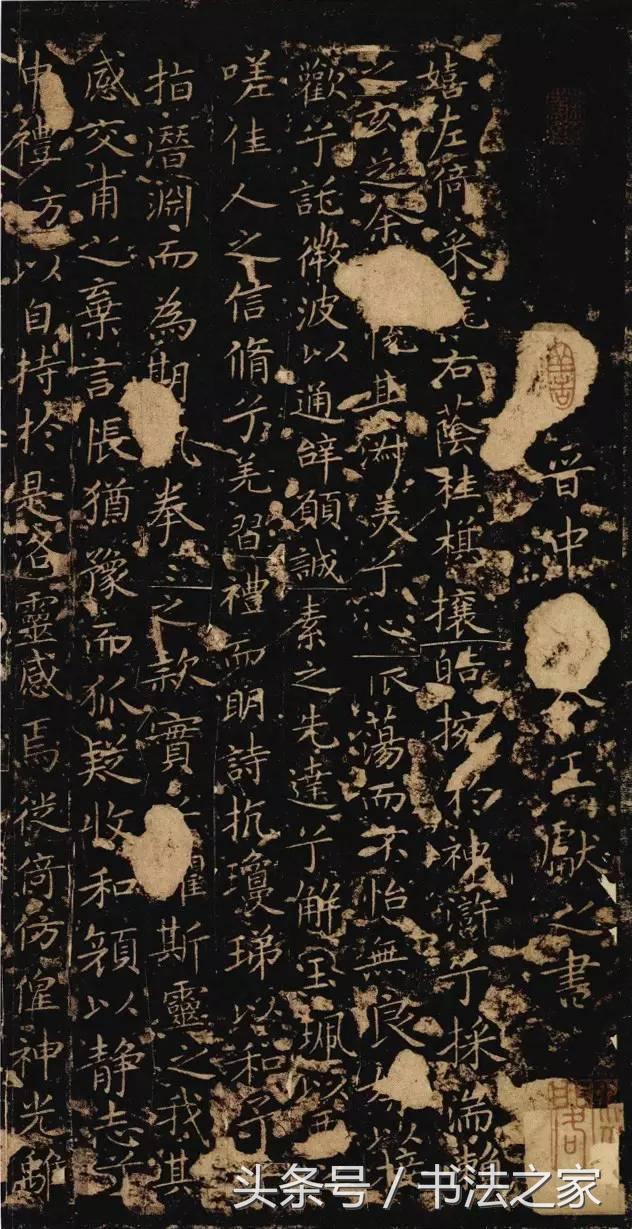 晉中令王獻之書
嬉左倚采旄右蔭桂旗攘皓捥於神滸兮採湍瀨
之玄芝余悅其淑美兮心振蕩而不怡無良媒以接
歡兮託微波以通辭願誠素之先達兮解玉珮以要
嗟佳人之信脩兮羌習禮而明詩抗瓊珶以和予
指潛淵而為期執拳〻之款實兮懼斯靈之我欺
感交甫之棄言悵猶豫而狐疑收和顏以静志兮
申禮方以自持於是洛靈感焉徙倚仿偟神光離
头条号 / 书法之家